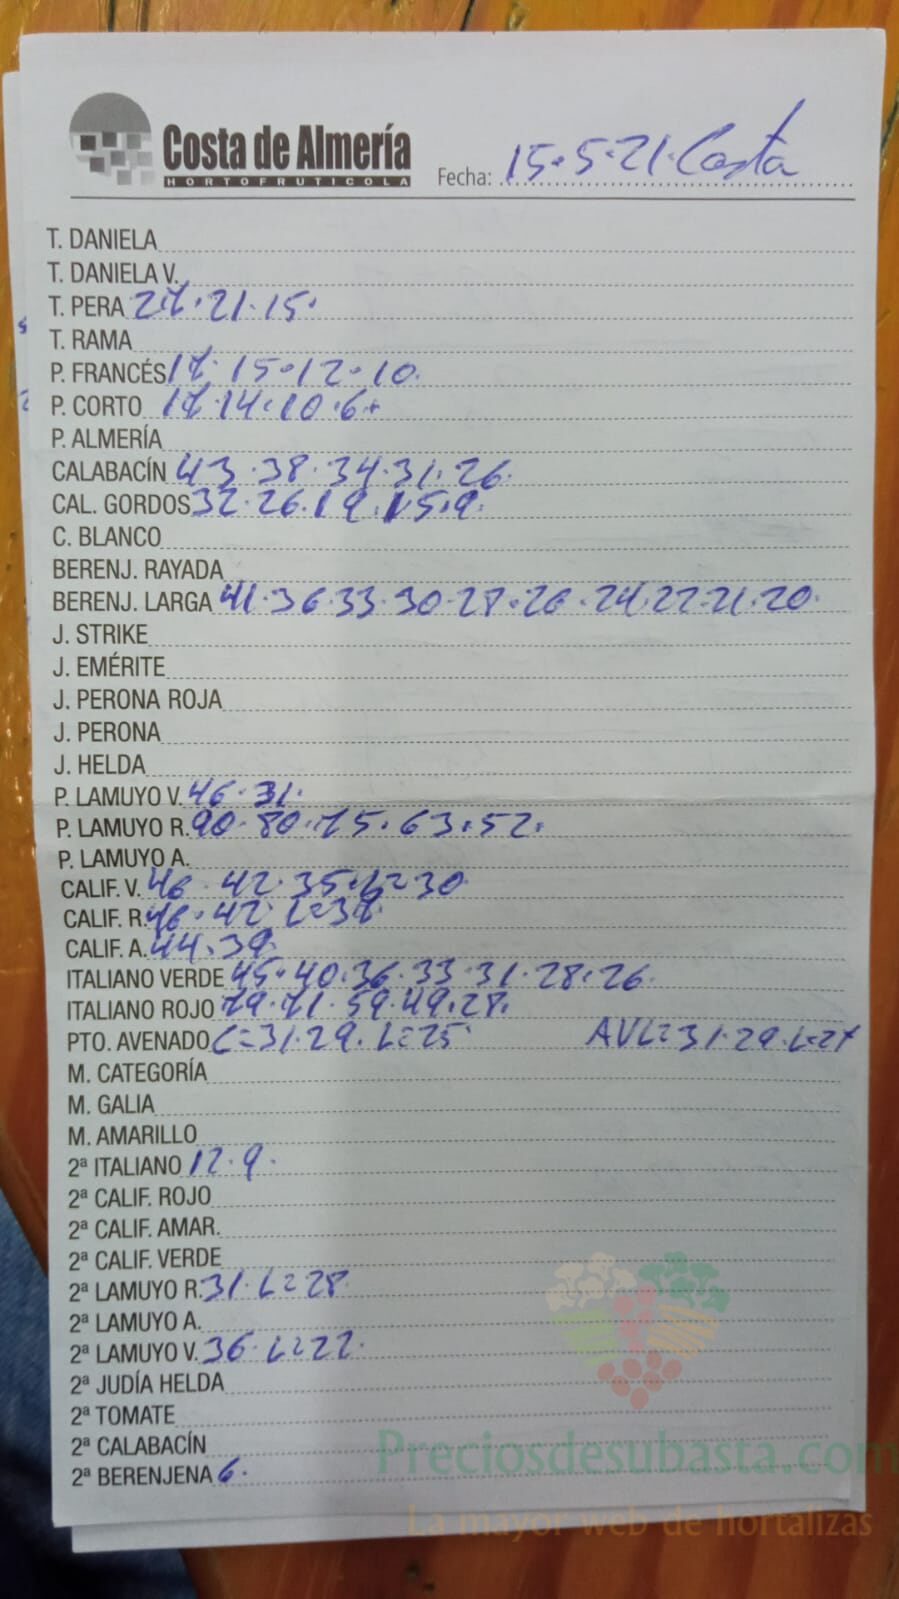 Costa de Almería
HORTOFRUTICOLA
Fecha: 15.5.21. Costa
T. DANIELA
T. DANIELA V.
T. PERA 27.21.15.
T. RAMA
P. FRANCÉS 17.15.12.10.
P. CORTO 17.14.10.6.
P. ALMERÍA
CALABACÍN 43.38.34.31.26.
CAL. GORDOS 32.26.19.15.9.
C. BLANCO
BERENJ. RAYADA
BERENJ. LARGA 41.36.33.30.28.26.24.22.21.20.
J. STRIKE
J. EMÉRITE
J. PERONA ROJA
J. PERONA
J. HELDA
P. LAMUYO V. 46.31.
P. LAMUYO R. 90.80.75.63.52.
P. LAMUYO A.
CALIF. V. 46.42.35.L=30
CALIF. R. 46.42.L=38
CALIF. A. 44.39.
ITALIANO VERDE 45.40.36.33.31.28.26.
ITALIANO ROJO 79.71.59.49.28.
PTO. AVENADO C=31.29.L=25 AVL=31.29.L=27
M. CATEGORÍA
M. GALIA
M. AMARILLO
2ª ITALIANO 12.9.
2ª CALIF. ROJO
2ª CALIF. AMAR.
2ª CALIF. VERDE
2ª LAMUYO R. 31.L=28
2ª LAMUYO A.
2ª LAMUYO V. 36.L=22.
2ª JUDÍA HELDA
2ª TOMATE
2ª CALABACÍN
2ª BERENJENA 6.
Preciosdesubasta.com
La mayor web de hortalizas